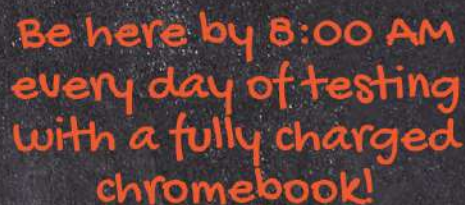 Be here by 8:00 AM
every day of testing
with a fully charged
chromebook!